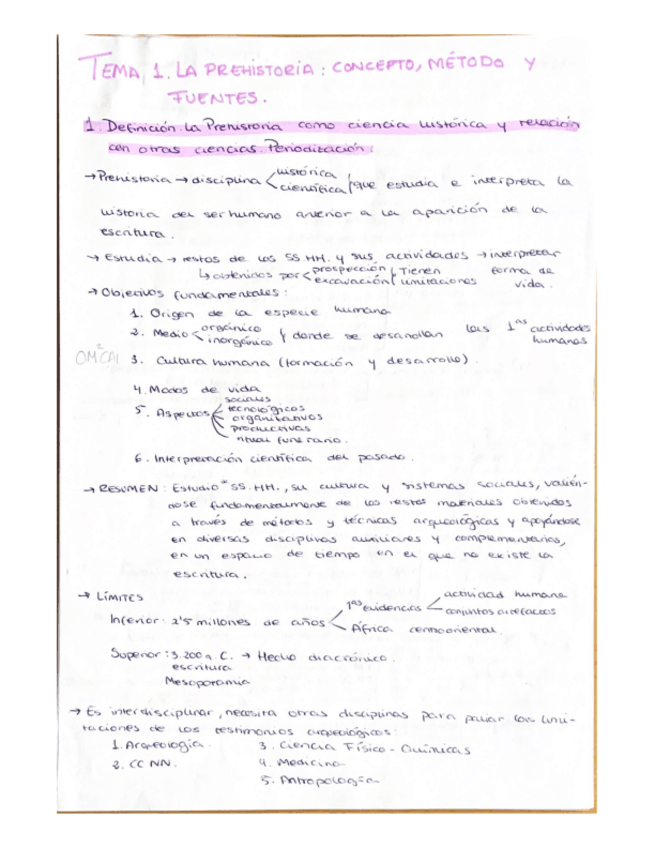 TEMA 1. LA PREHISTORIA: CONCEPTO, MÉTODO Y
FUENTES.
1. Definición. La Prehistoria como ciencia histórica y relación
con otras ciencias. Periodización:
→ Prehistoria → disciplina < histórica
científica / que estudia e interpreta la
historia del ser humano anterior a la aparición de la
escritura.
→ Estudia → restos de los SS.HH. y sus actividades → interpretar
↳ obtenidos por < prospección
excavación / Tienen
limitaciones
forma de
vida.
→ Objetivos fundamentales:
1. Origen de la especie humana
2. Medio < orgánico
inorgánico / donde se desarrollan las 1as actividades
humanas
OM²CAI 3. Cultura humana (formación y desarrollo).
4. Modos de vida
5. Aspectos < sociales
tecnológicos
organizativos
productivos
ritual funerario.
6. Interpretación científica del pasado.
→ RESUMEN: Estudio SS.HH., su cultura y sistemas sociales, valién-
nose fundamentalmente de los restos materiales obtenidos
a través de métodos y técnicas arqueológicas y apoyándose
en diversas disciplinas auxiliares y complementarias,
en un espacio de tiempo en el que no existe la
escritura.
→ LÍMITES
Inferior: 2'5 millones de años < 1as evidencias < actividad humana
conjuntos artefactos
África centrooriental.
Superior: 3.200 a.C. → Hecho diacrónico.
escritura
Mesopotamia
→ Es interdisciplinar, necesita otras disciplinas para paliar las limi-
taciones de los testimonios arqueológicos:
1. Arqueología. 3. Ciencia Físico-Químicas
2. CCNN. 4. Medicina
5. Antropología